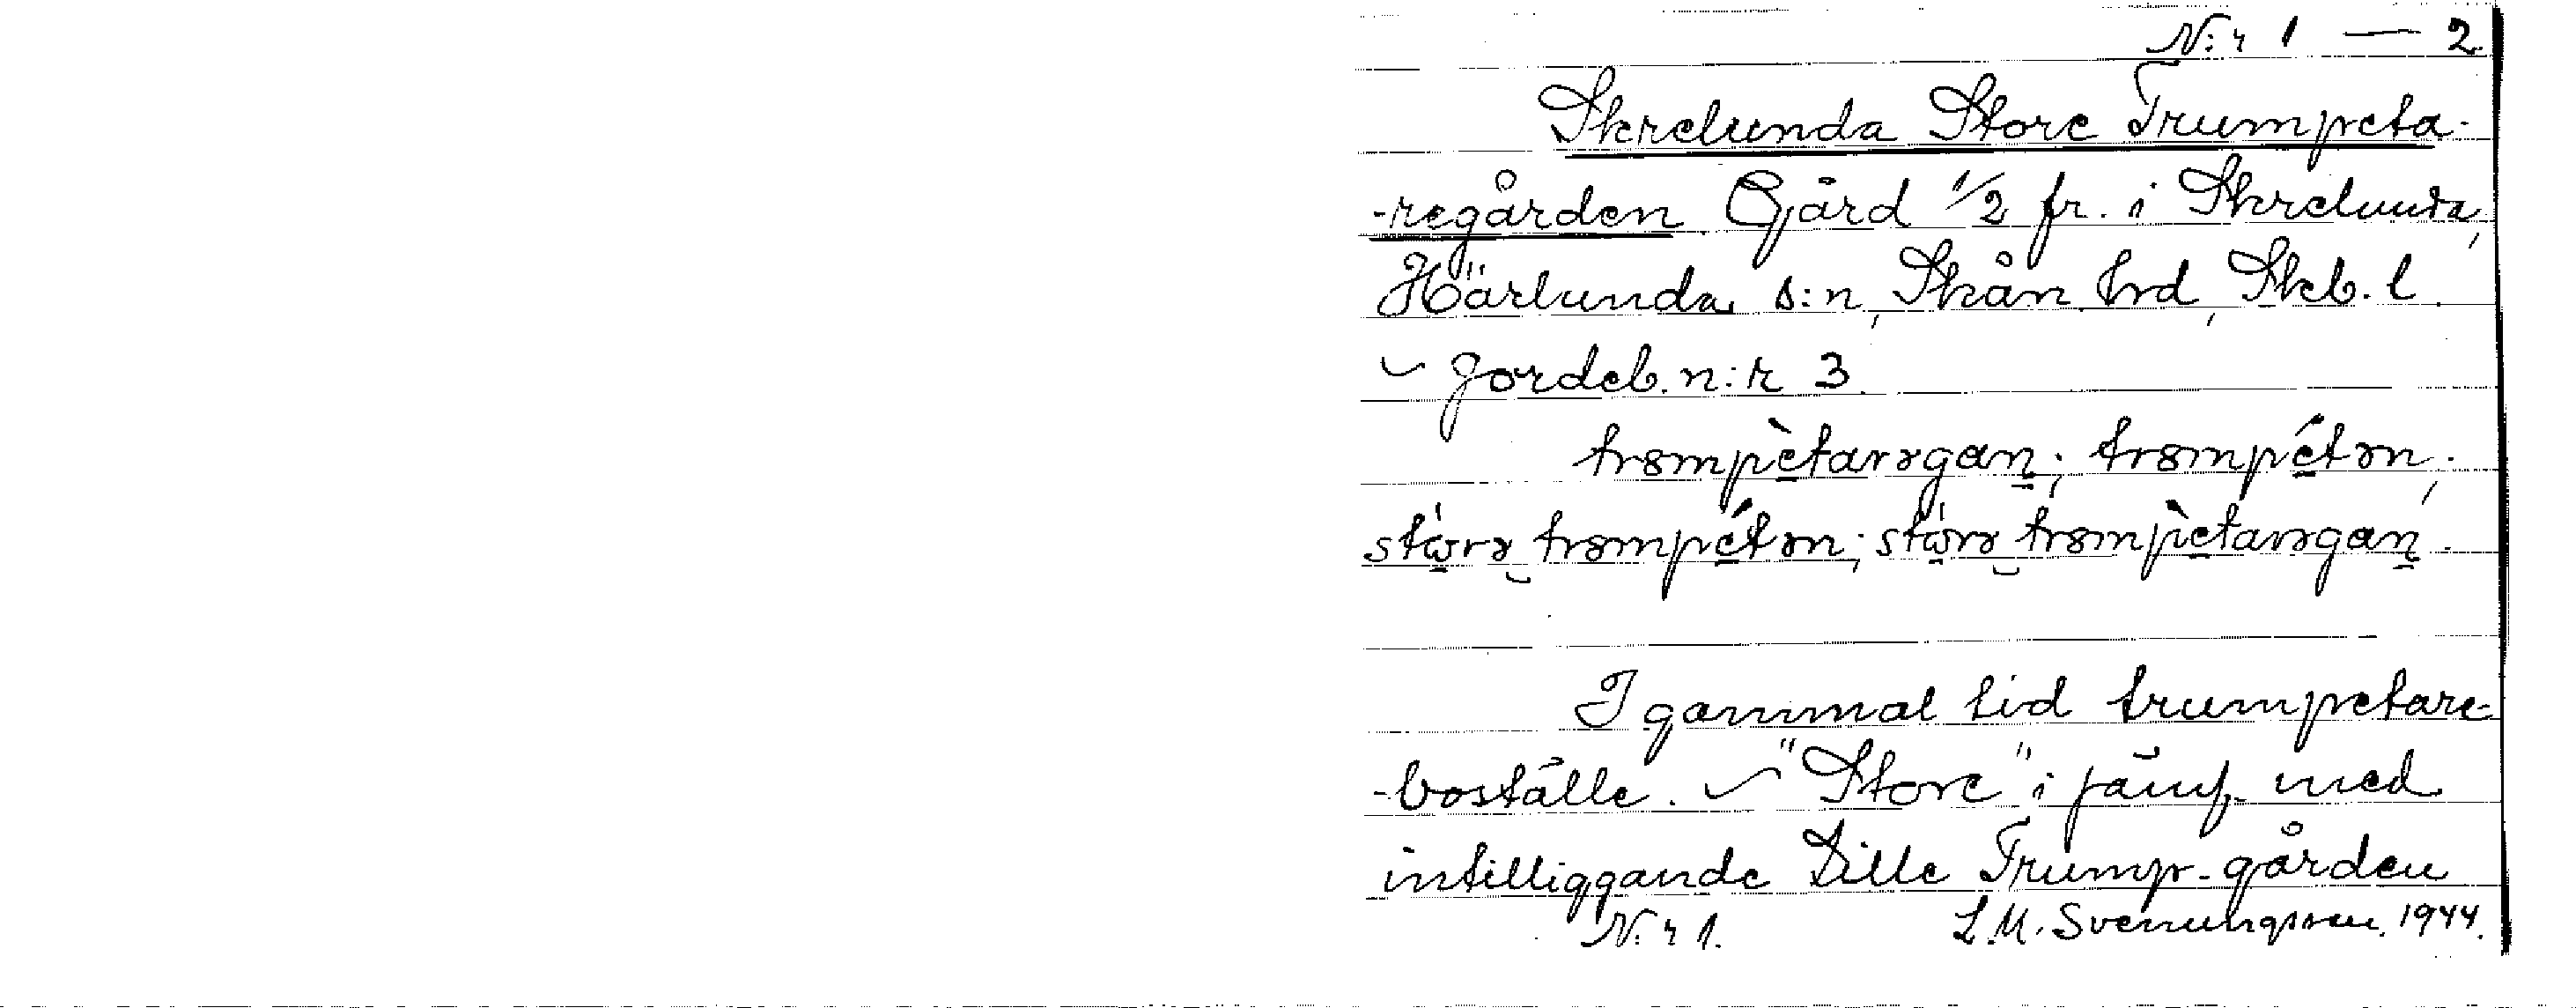 N:r 1 — 2
Skrelunda Store Trumpeta-
-regården. Gård 1/2 fr. i Skrelunda,
Härlunda s:n, Skån. hrd, Skb. l.
Jordeb. n:r 3.
I gammal tid trumpetare-
-boställe. "Store" i jämf. med
intilliggande Lille Trump-gården
N:r 1. L.M. Svenungsson. 1944.